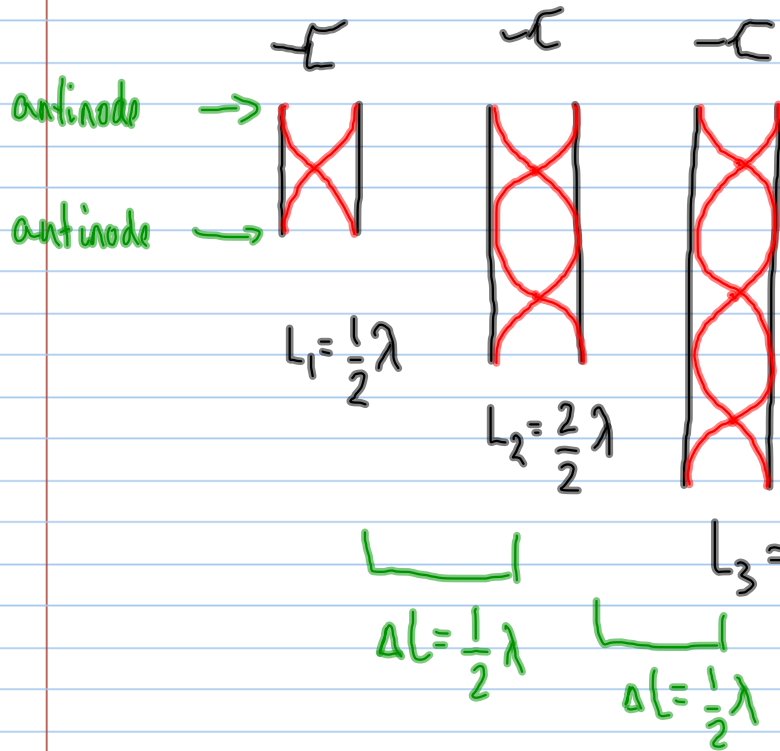 antinode
antinode
L₁ = 1/2 λ
L₂ = 2/2 λ
L₃ =
ΔL = 1/2 λ
ΔL = 1/2 λ